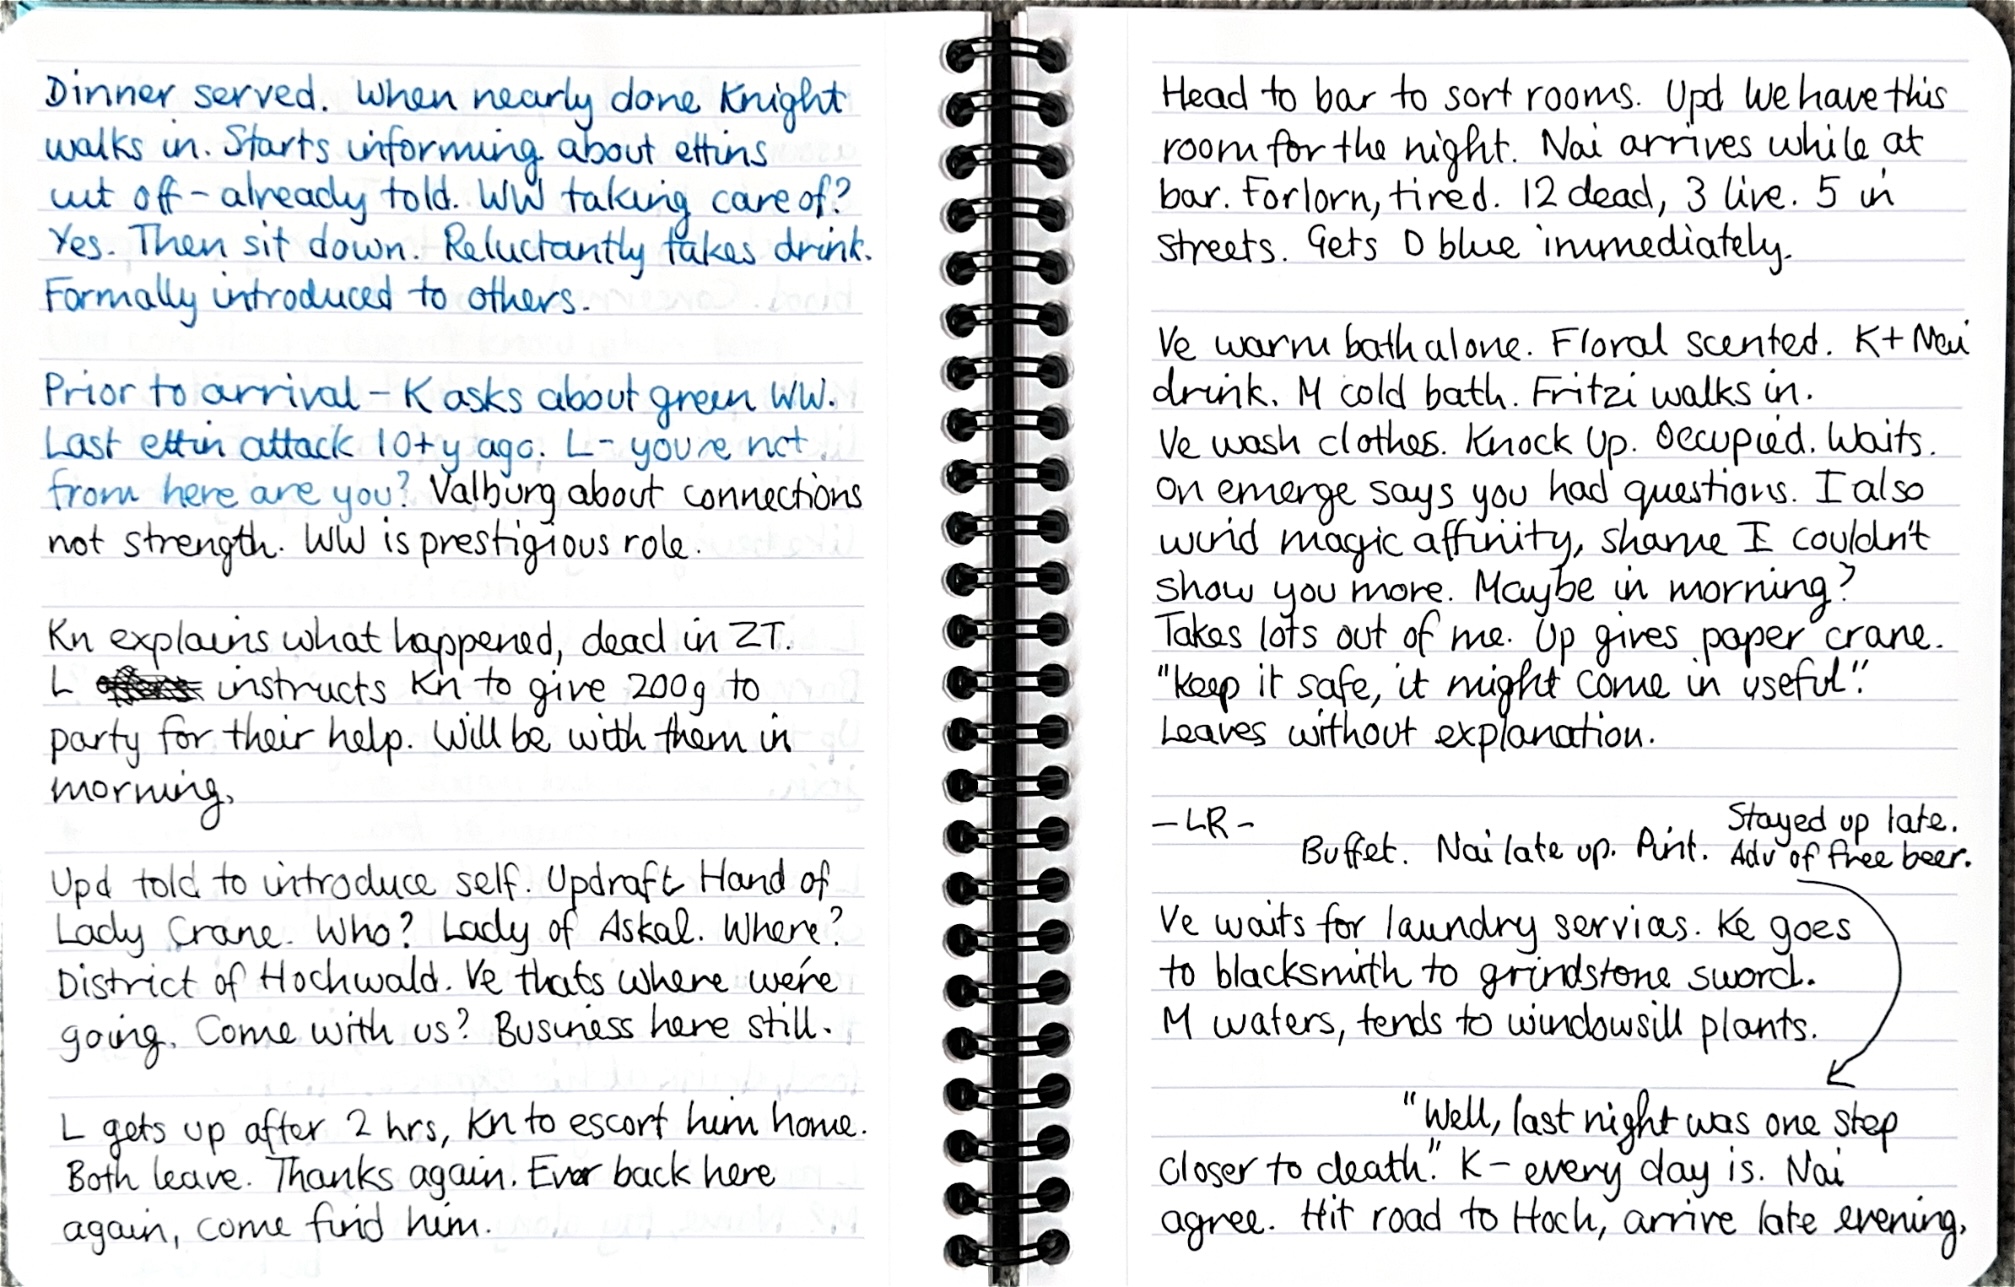 Dinner served. When nearly done Knight
walks in. Starts informing about ettins
cut off - already told. WW taking care of?
Yes. Then sit down. Reluctantly takes drink.
Formally introduced to others.
Prior to arrival - K asks about green WW.
Last ettin attack 10+y ago. L - you're not
from here are you? Valburg about connections
not strength. WW is prestigious role.
Kn explains what happened, dead in ZT.
L instructs Kn to give 200g to
party for their help. Will be with them in
morning.
Upd told to introduce self. Updraft Hand of
Lady Crane. Who? Lady of Askal. Where?
District of Hochwald. Ve thats where we're
going. Come with us? Business here still.
L gets up after 2 hrs, Kn to escort him home.
Both leave. Thanks again. Ever back here
again, come find him.
Head to bar to sort rooms. Upd We have this
room for the night. Nai arrives while at
bar. Forlorn, tired. 12 dead, 3 live. 5 in
streets. Gets D blue immediately.
Ve warm bath alone. Floral scented. K + Nai
drink. M cold bath. Fritzi walks in.
Ve wash clothes. Knock Up. Occupied. Waits.
On emerge says you had questions. I also
wind magic affinity, shame I couldn't
show you more. Maybe in morning?
Takes lots out of me. Up gives paper crane.
"Keep it safe, it might come in useful".
Leaves without explanation.
- LR -
Buffet. Nai late up. Pint. Stayed up late.
Adv of free beer.
Ve waits for laundry servias. Ke goes
to blacksmith to grindstone sword.
M waters, tends to windowsill plants.
"Well, last night was one step
closer to death". K - every day is. Nai
agree. Hit road to Hoch, arrive late evening.